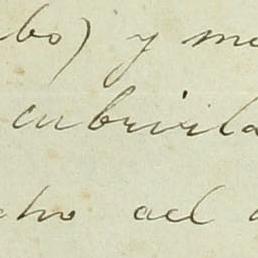 bo) y me
cubrirla
cho del